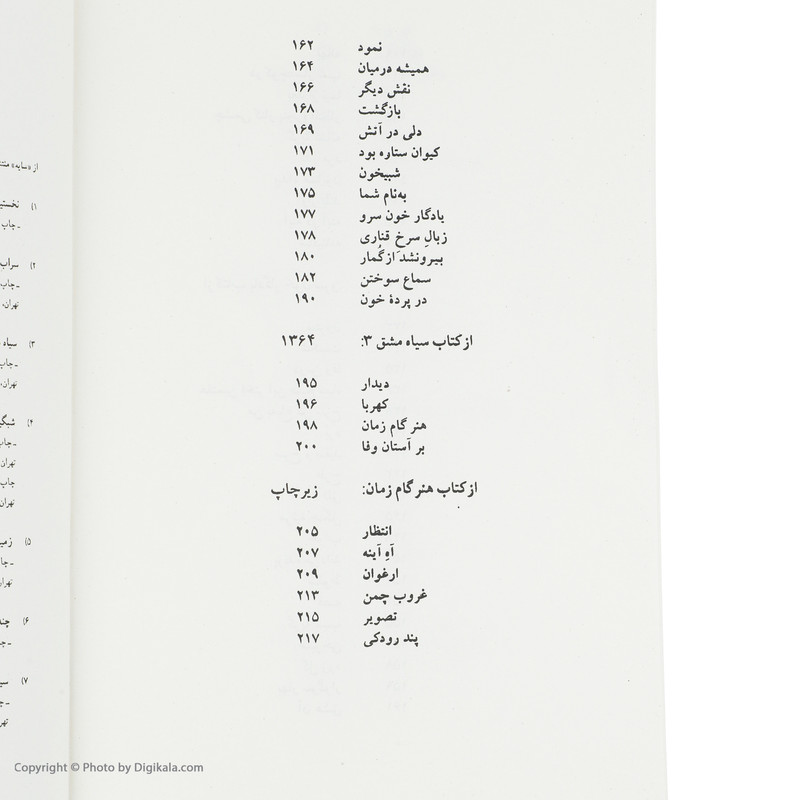 نمود ۱۶۲
همیشه درمیان ۱۶۴
نقش دیگر ۱۶۶
بازگشت ۱۶۸
دلی در آتش ۱۶۹
کیوان ستاره بود ۱۷۱
شبیخون ۱۷۳
به‌نام شما ۱۷۵
یادگار خون سرو ۱۷۷
زبالِ سرخِ قناری ۱۷۸
بیرونشد از گمار ۱۸۰
سماع سوختن ۱۸۲
در پردهٔ خون ۱۹۰
از کتاب سیاه مشق ۳: ۱۳۶۴
دیدار ۱۹۵
کهربا ۱۹۶
هنر گام زمان ۱۹۸
بر آستان وفا ۲۰۰
از کتاب هنر گام زمان: زیر چاپ
انتظار ۲۰۵
آهِ آینه ۲۰۷
ارغوان ۲۰۹
غروب چمن ۲۱۳
تصویر ۲۱۵
پند رودکی ۲۱۷
از «سایه»
۱)
ـ چاپ
۲) سراب
تهران،
۳) سیاه
ـ چاپ
تهران،
۴)
تهران
چاپ
تهران
۵)
۶)
۷)
Copyright © Photo by Digikala.com